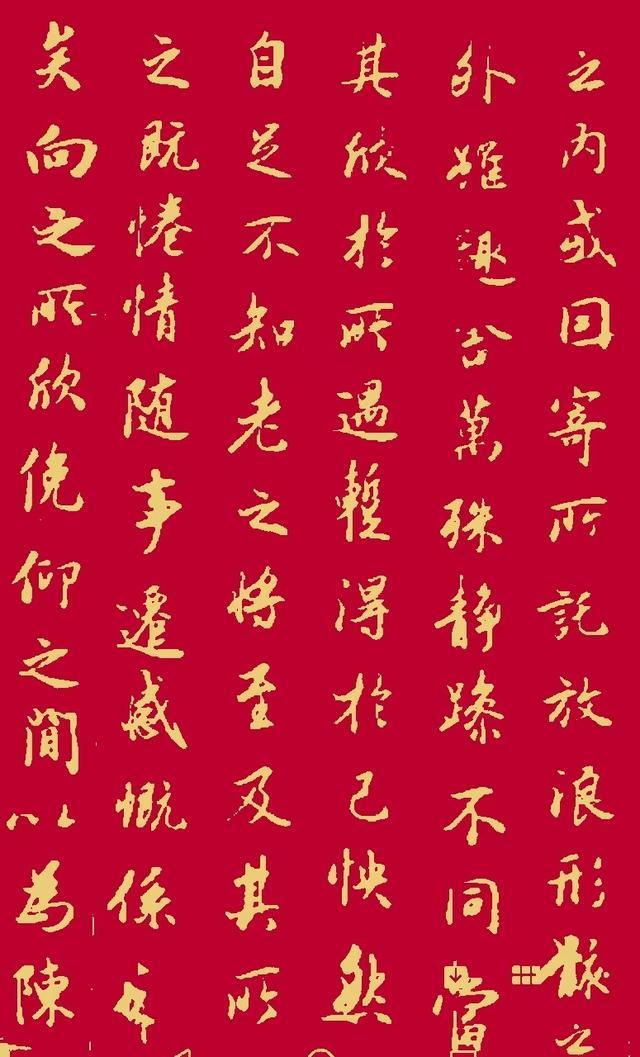 之内或因寄所託放浪形骸之
外雖趣舍萬殊静躁不同當
其欣於所遇蹔得於己怏然
自足不知老之將至及其所
之既惓情随事遷感慨係之
矣向之所欣俛仰之閒以為陳